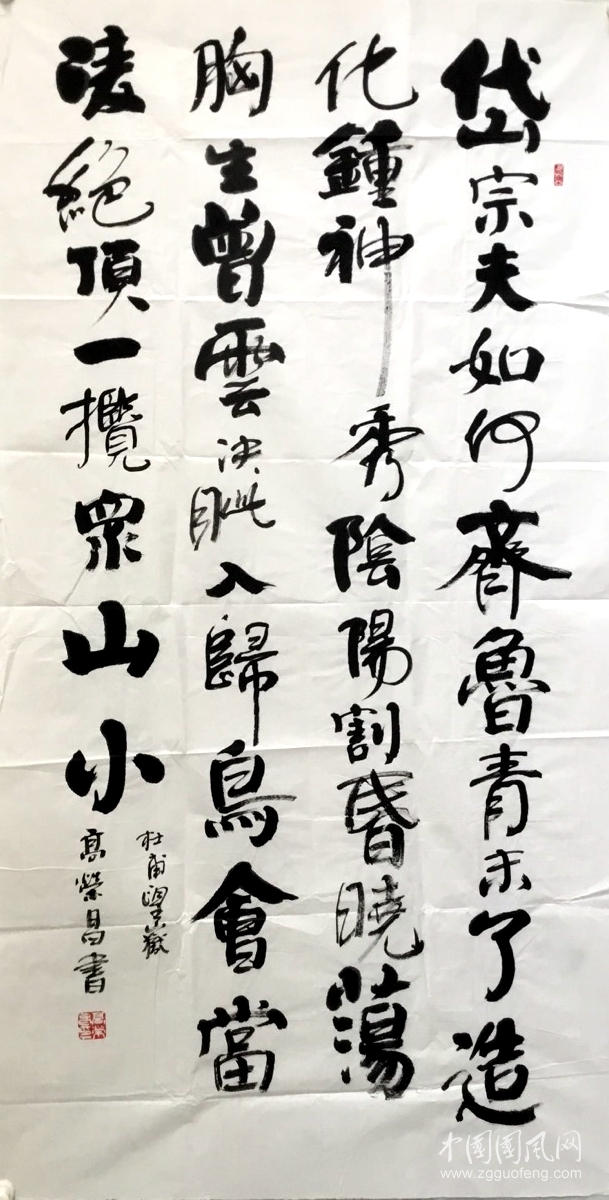 岱宗夫如何齊魯青未了造
化鍾神秀陰陽割昏曉蕩
胸生曾雲决眦入歸鳥會當
凌絕頂一攬眾山小
杜甫望嶽
高榮昌書
中國國風网
www.zgguofeng.com